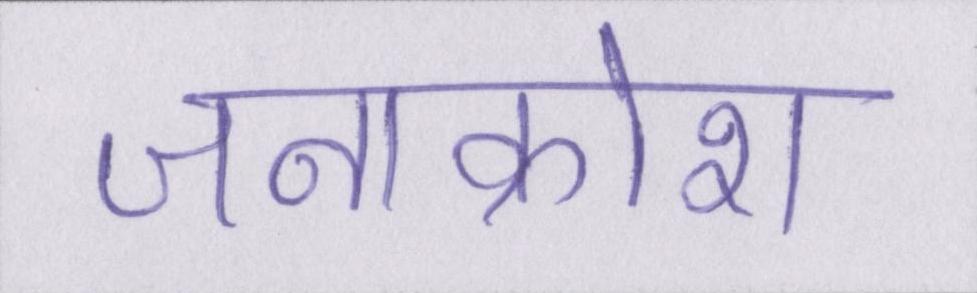 जनाक्रोश